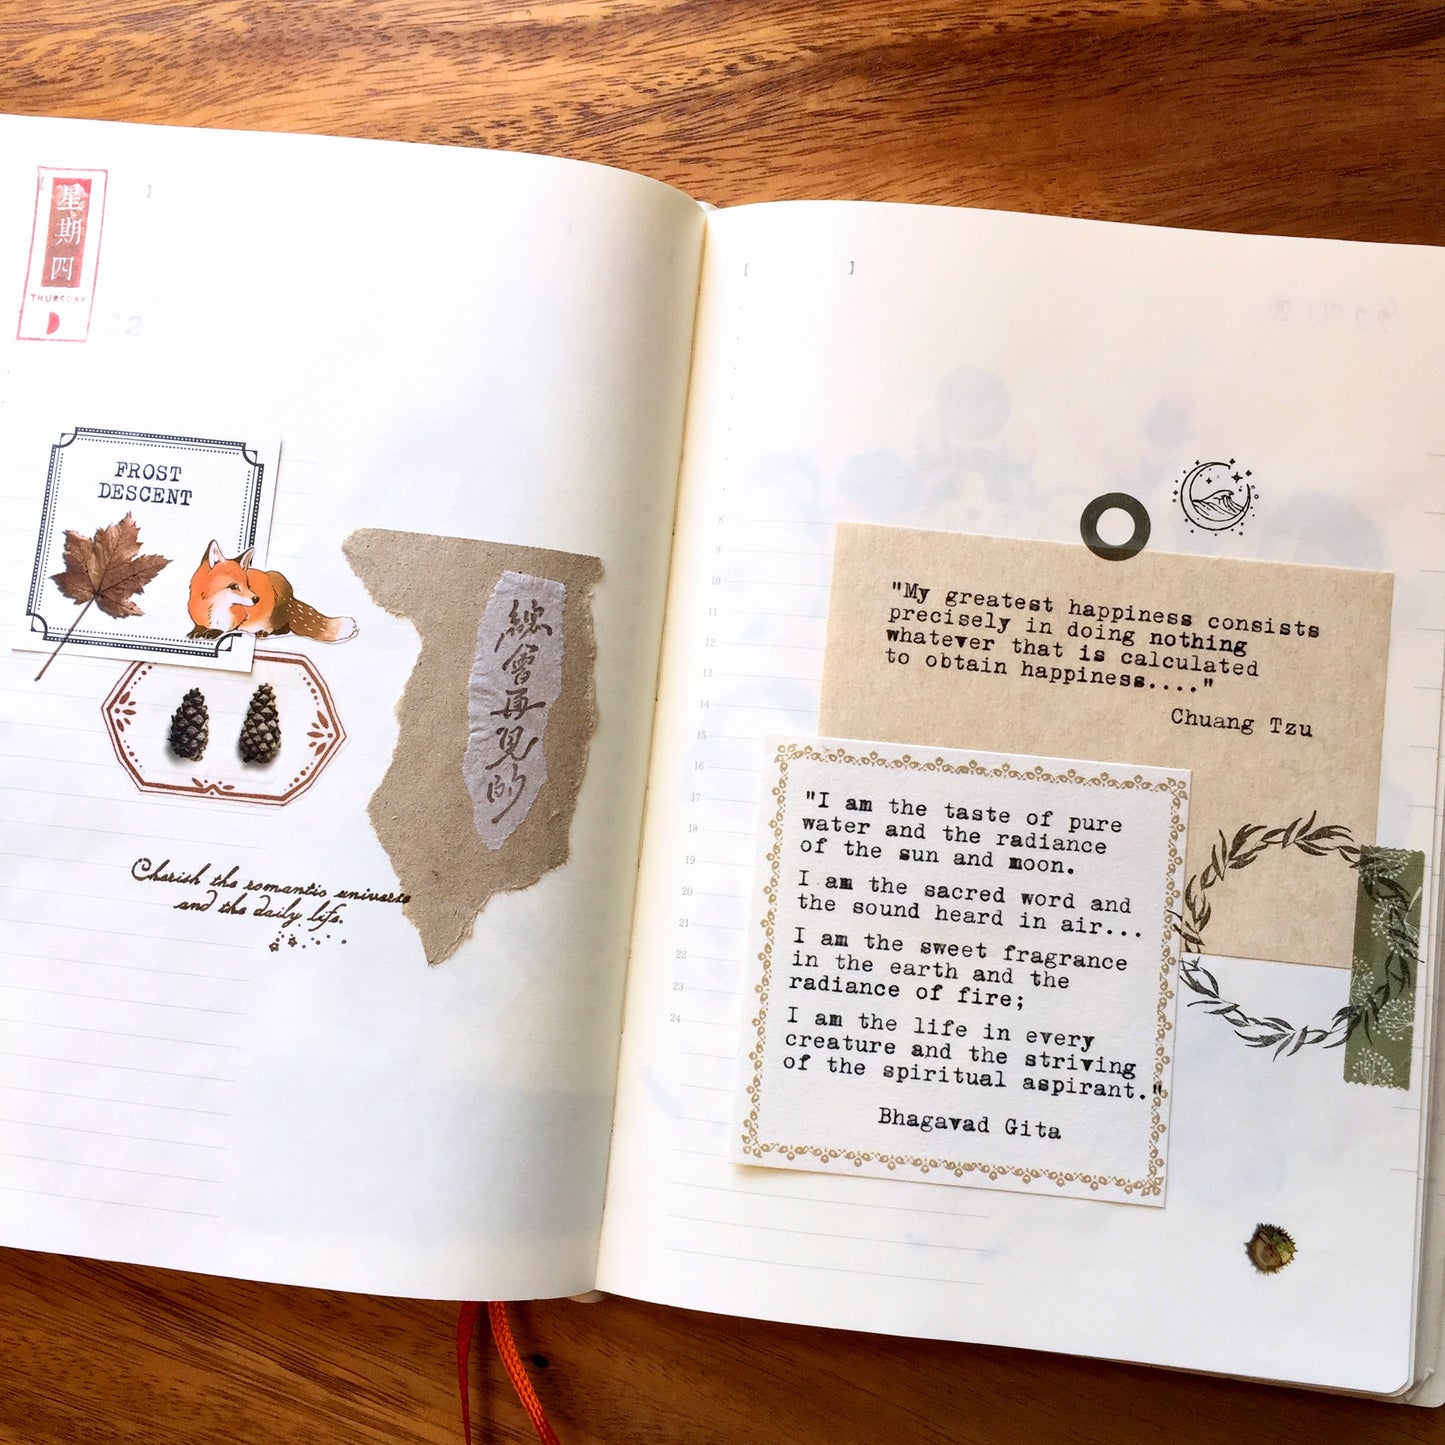 星期四
THURSDAY
FROST
DESCENT
總會再見的
Cherish the romantic universe
and the daily life.
8
9
10
11
12
13
14
15
16
17
18
19
20
21
22
23
24
"My greatest happiness consists
precisely in doing nothing
whatever that is calculated
to obtain happiness...."
Chuang Tzu
"I am the taste of pure
water and the radiance
of the sun and moon.
I am the sacred word and
the sound heard in air...
I am the sweet fragrance
in the earth and the
radiance of fire;
I am the life in every
creature and the striving
of the spiritual aspirant."
Bhagavad Gita